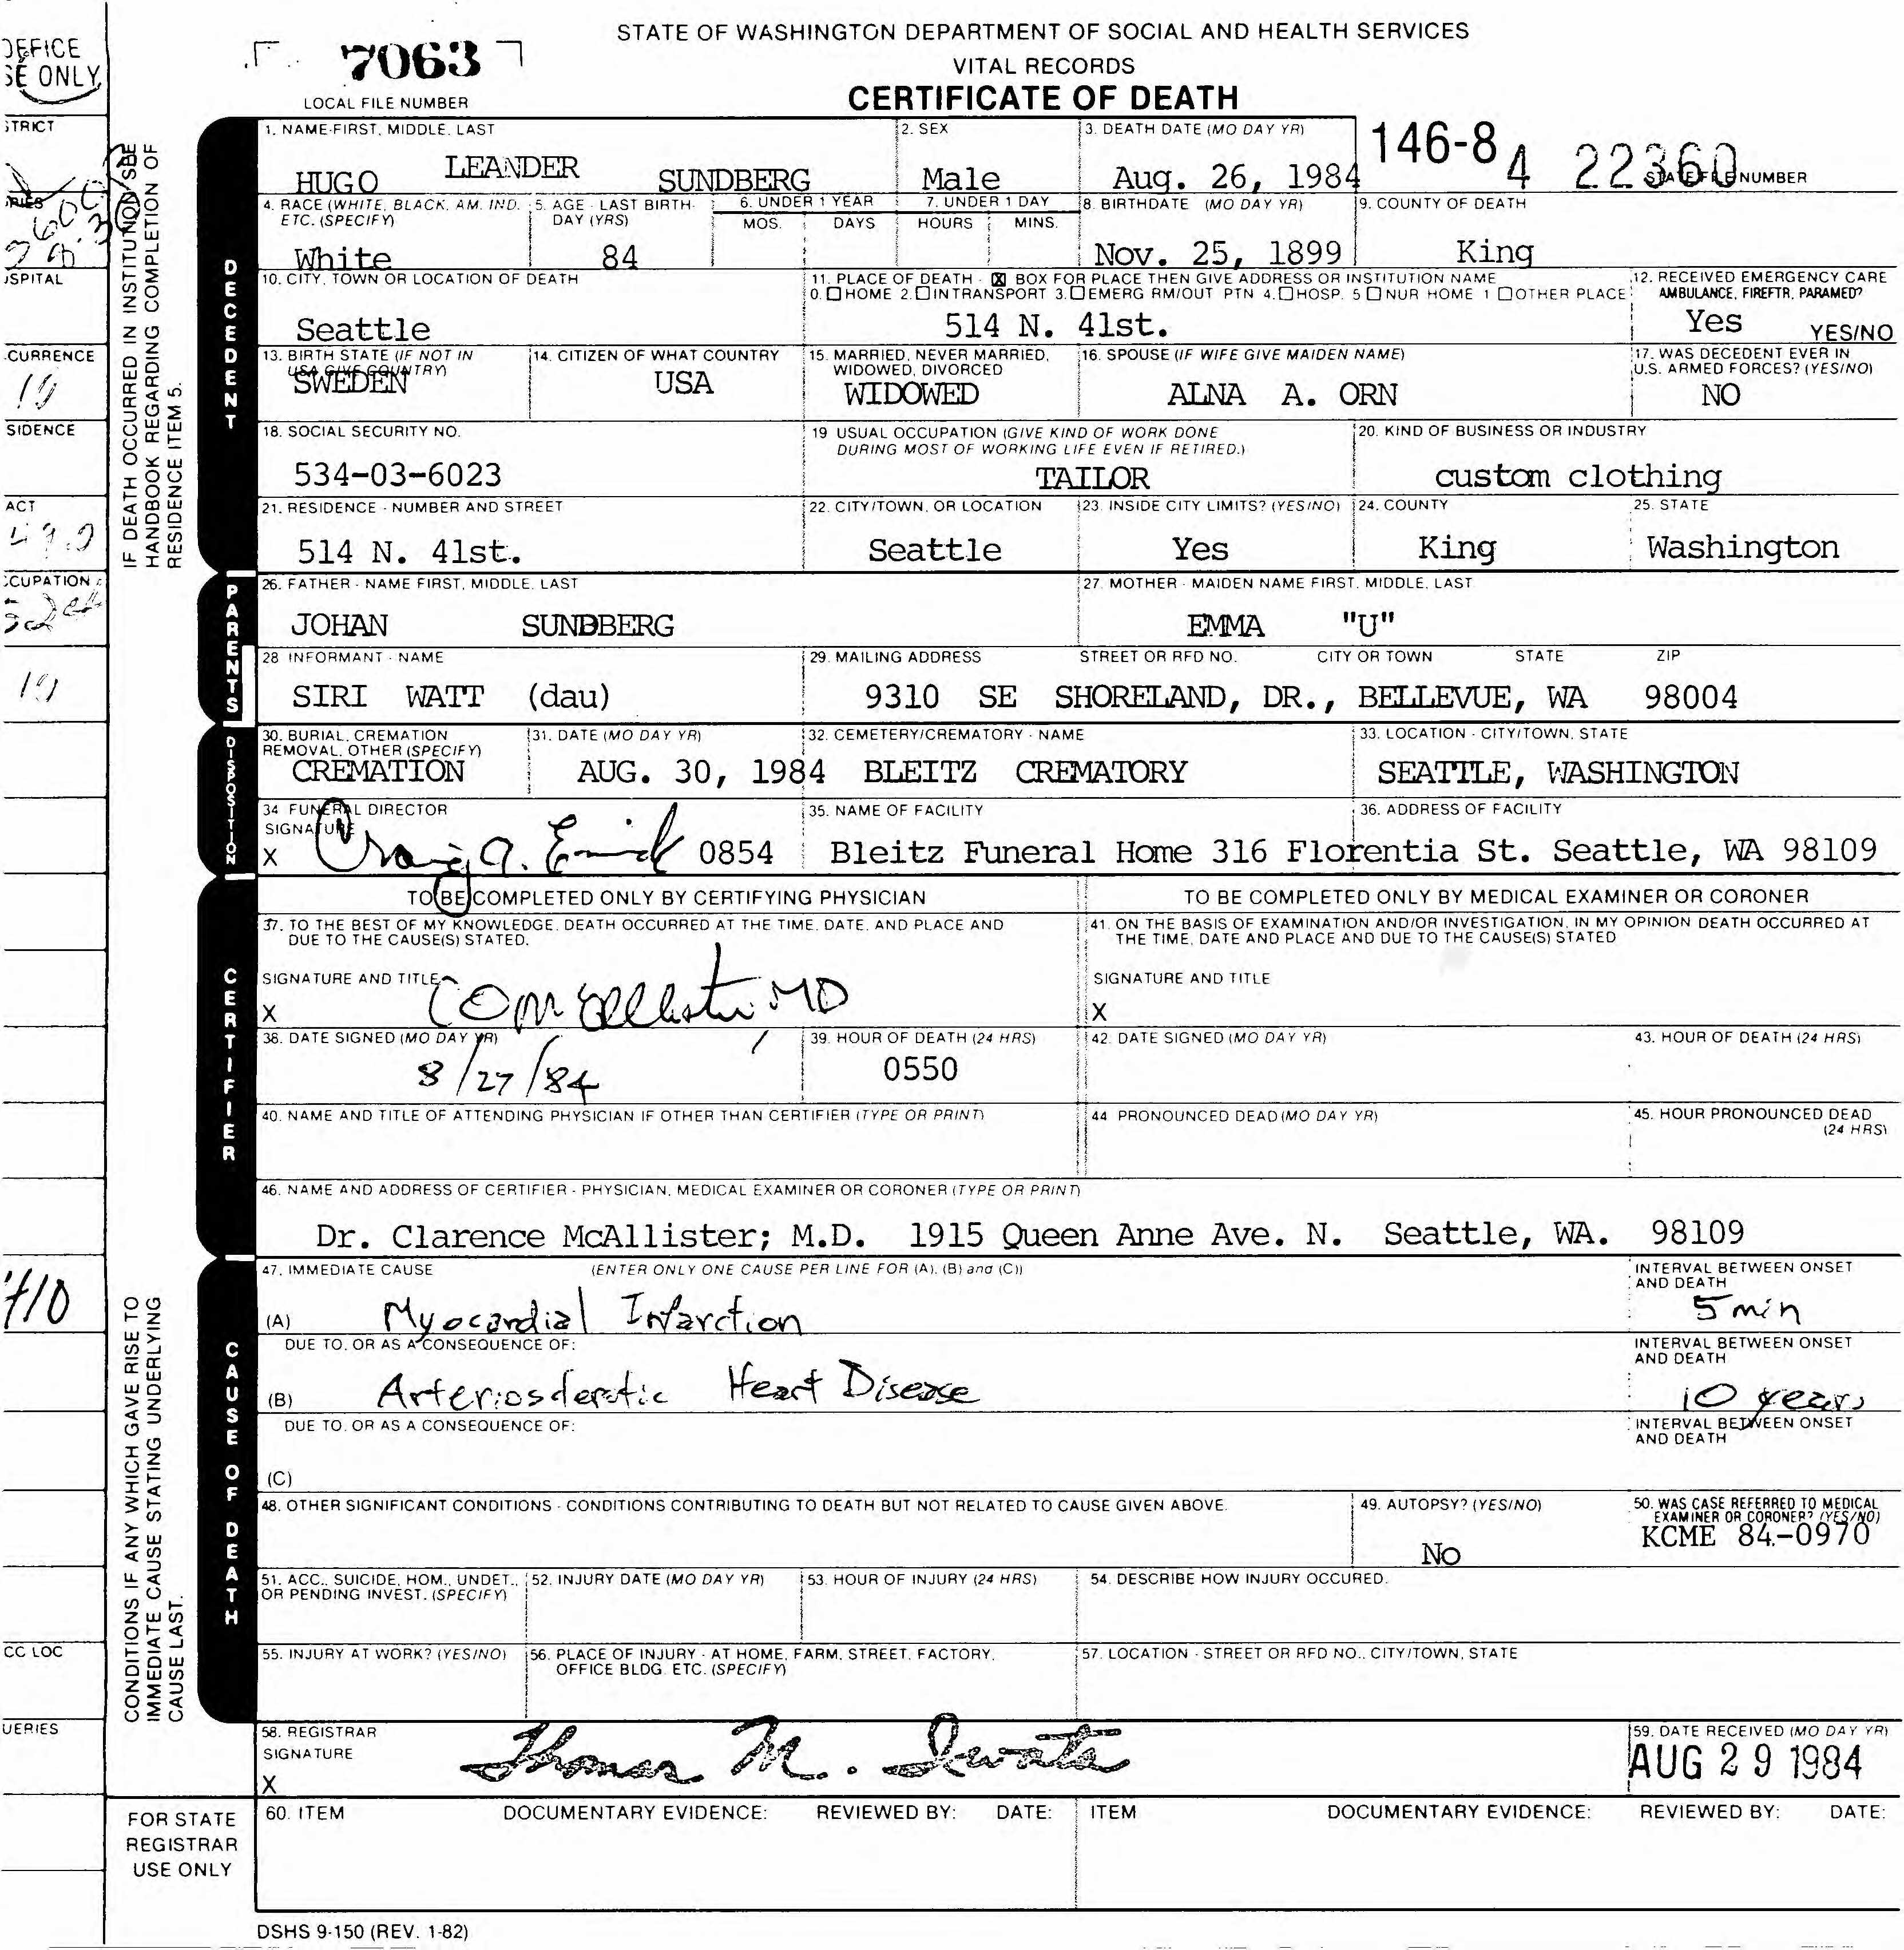 OFFICE
SE ONLY
STATE OF WASHINGTON DEPARTMENT OF SOCIAL AND HEALTH SERVICES
7063
VITAL RECORDS
LOCAL FILE NUMBER
CERTIFICATE OF DEATH
146-84 22360
STATE FILE NUMBER
1. NAME-FIRST, MIDDLE, LAST 2. SEX 3. DEATH DATE (MO DAY YR)
HUGO LEANDER SUNDBERG Male Aug. 26, 1984
4. RACE (WHITE, BLACK, AM. IND. ETC. (SPECIFY) 5. AGE - LAST BIRTH-DAY (YRS) 6. UNDER 1 YEAR MOS. DAYS 7. UNDER 1 DAY HOURS MINS. 8. BIRTHDATE (MO DAY YR) 9. COUNTY OF DEATH
White 84 Nov. 25, 1899 King
10. CITY, TOWN OR LOCATION OF DEATH 11. PLACE OF DEATH - ☒ BOX FOR PLACE THEN GIVE ADDRESS OR INSTITUTION NAME 12. RECEIVED EMERGENCY CARE
0. ☐ HOME 2. ☐ IN TRANSPORT 3. ☐ EMERG RM/OUT PTN 4. ☐ HOSP. 5 ☐ NUR HOME 1 ☐ OTHER PLACE AMBULANCE, FIREFTR, PARAMED?
Seattle 514 N. 41st. Yes YES/NO
13. BIRTH STATE (IF NOT IN USA GIVE COUNTRY) 14. CITIZEN OF WHAT COUNTRY 15. MARRIED, NEVER MARRIED, WIDOWED, DIVORCED 16. SPOUSE (IF WIFE GIVE MAIDEN NAME) 17. WAS DECEDENT EVER IN U.S. ARMED FORCES? (YES/NO)
SWEDEN USA WIDOWED ALNA A. ORN NO
18. SOCIAL SECURITY NO. 19 USUAL OCCUPATION (GIVE KIND OF WORK DONE DURING MOST OF WORKING LIFE EVEN IF RETIRED.) 20. KIND OF BUSINESS OR INDUSTRY
534-03-6023 TAILOR custom clothing
21. RESIDENCE - NUMBER AND STREET 22. CITY/TOWN, OR LOCATION 23. INSIDE CITY LIMITS? (YES/NO) 24. COUNTY 25. STATE
514 N. 41st. Seattle Yes King Washington
26. FATHER - NAME FIRST, MIDDLE, LAST 27. MOTHER - MAIDEN NAME FIRST, MIDDLE, LAST
JOHAN SUNDBERG EMMA "U"
28 INFORMANT - NAME 29. MAILING ADDRESS STREET OR RFD NO. CITY OR TOWN STATE ZIP
SIRI WATT (dau) 9310 SE SHORELAND, DR., BELLEVUE, WA 98004
30. BURIAL, CREMATION REMOVAL, OTHER (SPECIFY) 31. DATE (MO DAY YR) 32. CEMETERY/CREMATORY - NAME 33. LOCATION - CITY/TOWN, STATE
CREMATION AUG. 30, 1984 BLEITZ CREMATORY SEATTLE, WASHINGTON
34 FUNERAL DIRECTOR 35. NAME OF FACILITY 36. ADDRESS OF FACILITY
SIGNATURE
X Craig A. 0854 Bleitz Funeral Home 316 Florentia St. Seattle, WA 98109
TO BE COMPLETED ONLY BY CERTIFYING PHYSICIAN TO BE COMPLETED ONLY BY MEDICAL EXAMINER OR CORONER
37. TO THE BEST OF MY KNOWLEDGE, DEATH OCCURRED AT THE TIME, DATE, AND PLACE AND DUE TO THE CAUSE(S) STATED. 41. ON THE BASIS OF EXAMINATION AND/OR INVESTIGATION, IN MY OPINION DEATH OCCURRED AT THE TIME, DATE AND PLACE AND DUE TO THE CAUSE(S) STATED
SIGNATURE AND TITLE SIGNATURE AND TITLE
X C O McAllister MD X
38. DATE SIGNED (MO DAY YR) 39. HOUR OF DEATH (24 HRS) 42. DATE SIGNED (MO DAY YR) 43. HOUR OF DEATH (24 HRS)
8/27/84 0550
40. NAME AND TITLE OF ATTENDING PHYSICIAN IF OTHER THAN CERTIFIER (TYPE OR PRINT) 44 PRONOUNCED DEAD (MO DAY YR) 45. HOUR PRONOUNCED DEAD (24 HRS)
46. NAME AND ADDRESS OF CERTIFIER - PHYSICIAN, MEDICAL EXAMINER OR CORONER (TYPE OR PRINT)
Dr. Clarence McAllister; M.D. 1915 Queen Anne Ave. N. Seattle, WA. 98109
47. IMMEDIATE CAUSE (ENTER ONLY ONE CAUSE PER LINE FOR (A), (B) and (C)) INTERVAL BETWEEN ONSET AND DEATH
(A) Myocardial Infarction 5 min
DUE TO, OR AS A CONSEQUENCE OF: INTERVAL BETWEEN ONSET AND DEATH
(B) Arteriosclerotic Heart Disease 10 years
DUE TO, OR AS A CONSEQUENCE OF: INTERVAL BETWEEN ONSET AND DEATH
(C)
48. OTHER SIGNIFICANT CONDITIONS - CONDITIONS CONTRIBUTING TO DEATH BUT NOT RELATED TO CAUSE GIVEN ABOVE. 49. AUTOPSY? (YES/NO) 50. WAS CASE REFERRED TO MEDICAL EXAMINER OR CORONER? (YES/NO)
No KCME 84-0970
51. ACC., SUICIDE, HOM., UNDET., OR PENDING INVEST. (SPECIFY) 52. INJURY DATE (MO DAY YR) 53. HOUR OF INJURY (24 HRS) 54. DESCRIBE HOW INJURY OCCURED.
55. INJURY AT WORK? (YES/NO) 56. PLACE OF INJURY - AT HOME, FARM, STREET, FACTORY, OFFICE BLDG. ETC. (SPECIFY) 57. LOCATION - STREET OR RFD NO., CITY/TOWN, STATE
58. REGISTRAR 59. DATE RECEIVED (MO DAY YR)
SIGNATURE
X Thomas M. Iwata AUG 29 1984
FOR STATE REGISTRAR USE ONLY
60. ITEM DOCUMENTARY EVIDENCE: REVIEWED BY: DATE: ITEM DOCUMENTARY EVIDENCE: REVIEWED BY: DATE:
DSHS 9-150 (REV. 1-82)
DECEDENT
PARENTS
DISPOSITION
CERTIFIER
CAUSE OF DEATH
IF DEATH OCCURRED IN INSTITUTION SEE
HANDBOOK REGARDING COMPLETION OF
RESIDENCE ITEM 5.
CONDITIONS IF ANY WHICH GAVE RISE TO
IMMEDIATE CAUSE STATING UNDERLYING
CAUSE LAST.
STRICT
OSPITAL
CURRENCE
19
SIDENCE
ACT
CCUPATION
19
410
CC LOC
UERIES